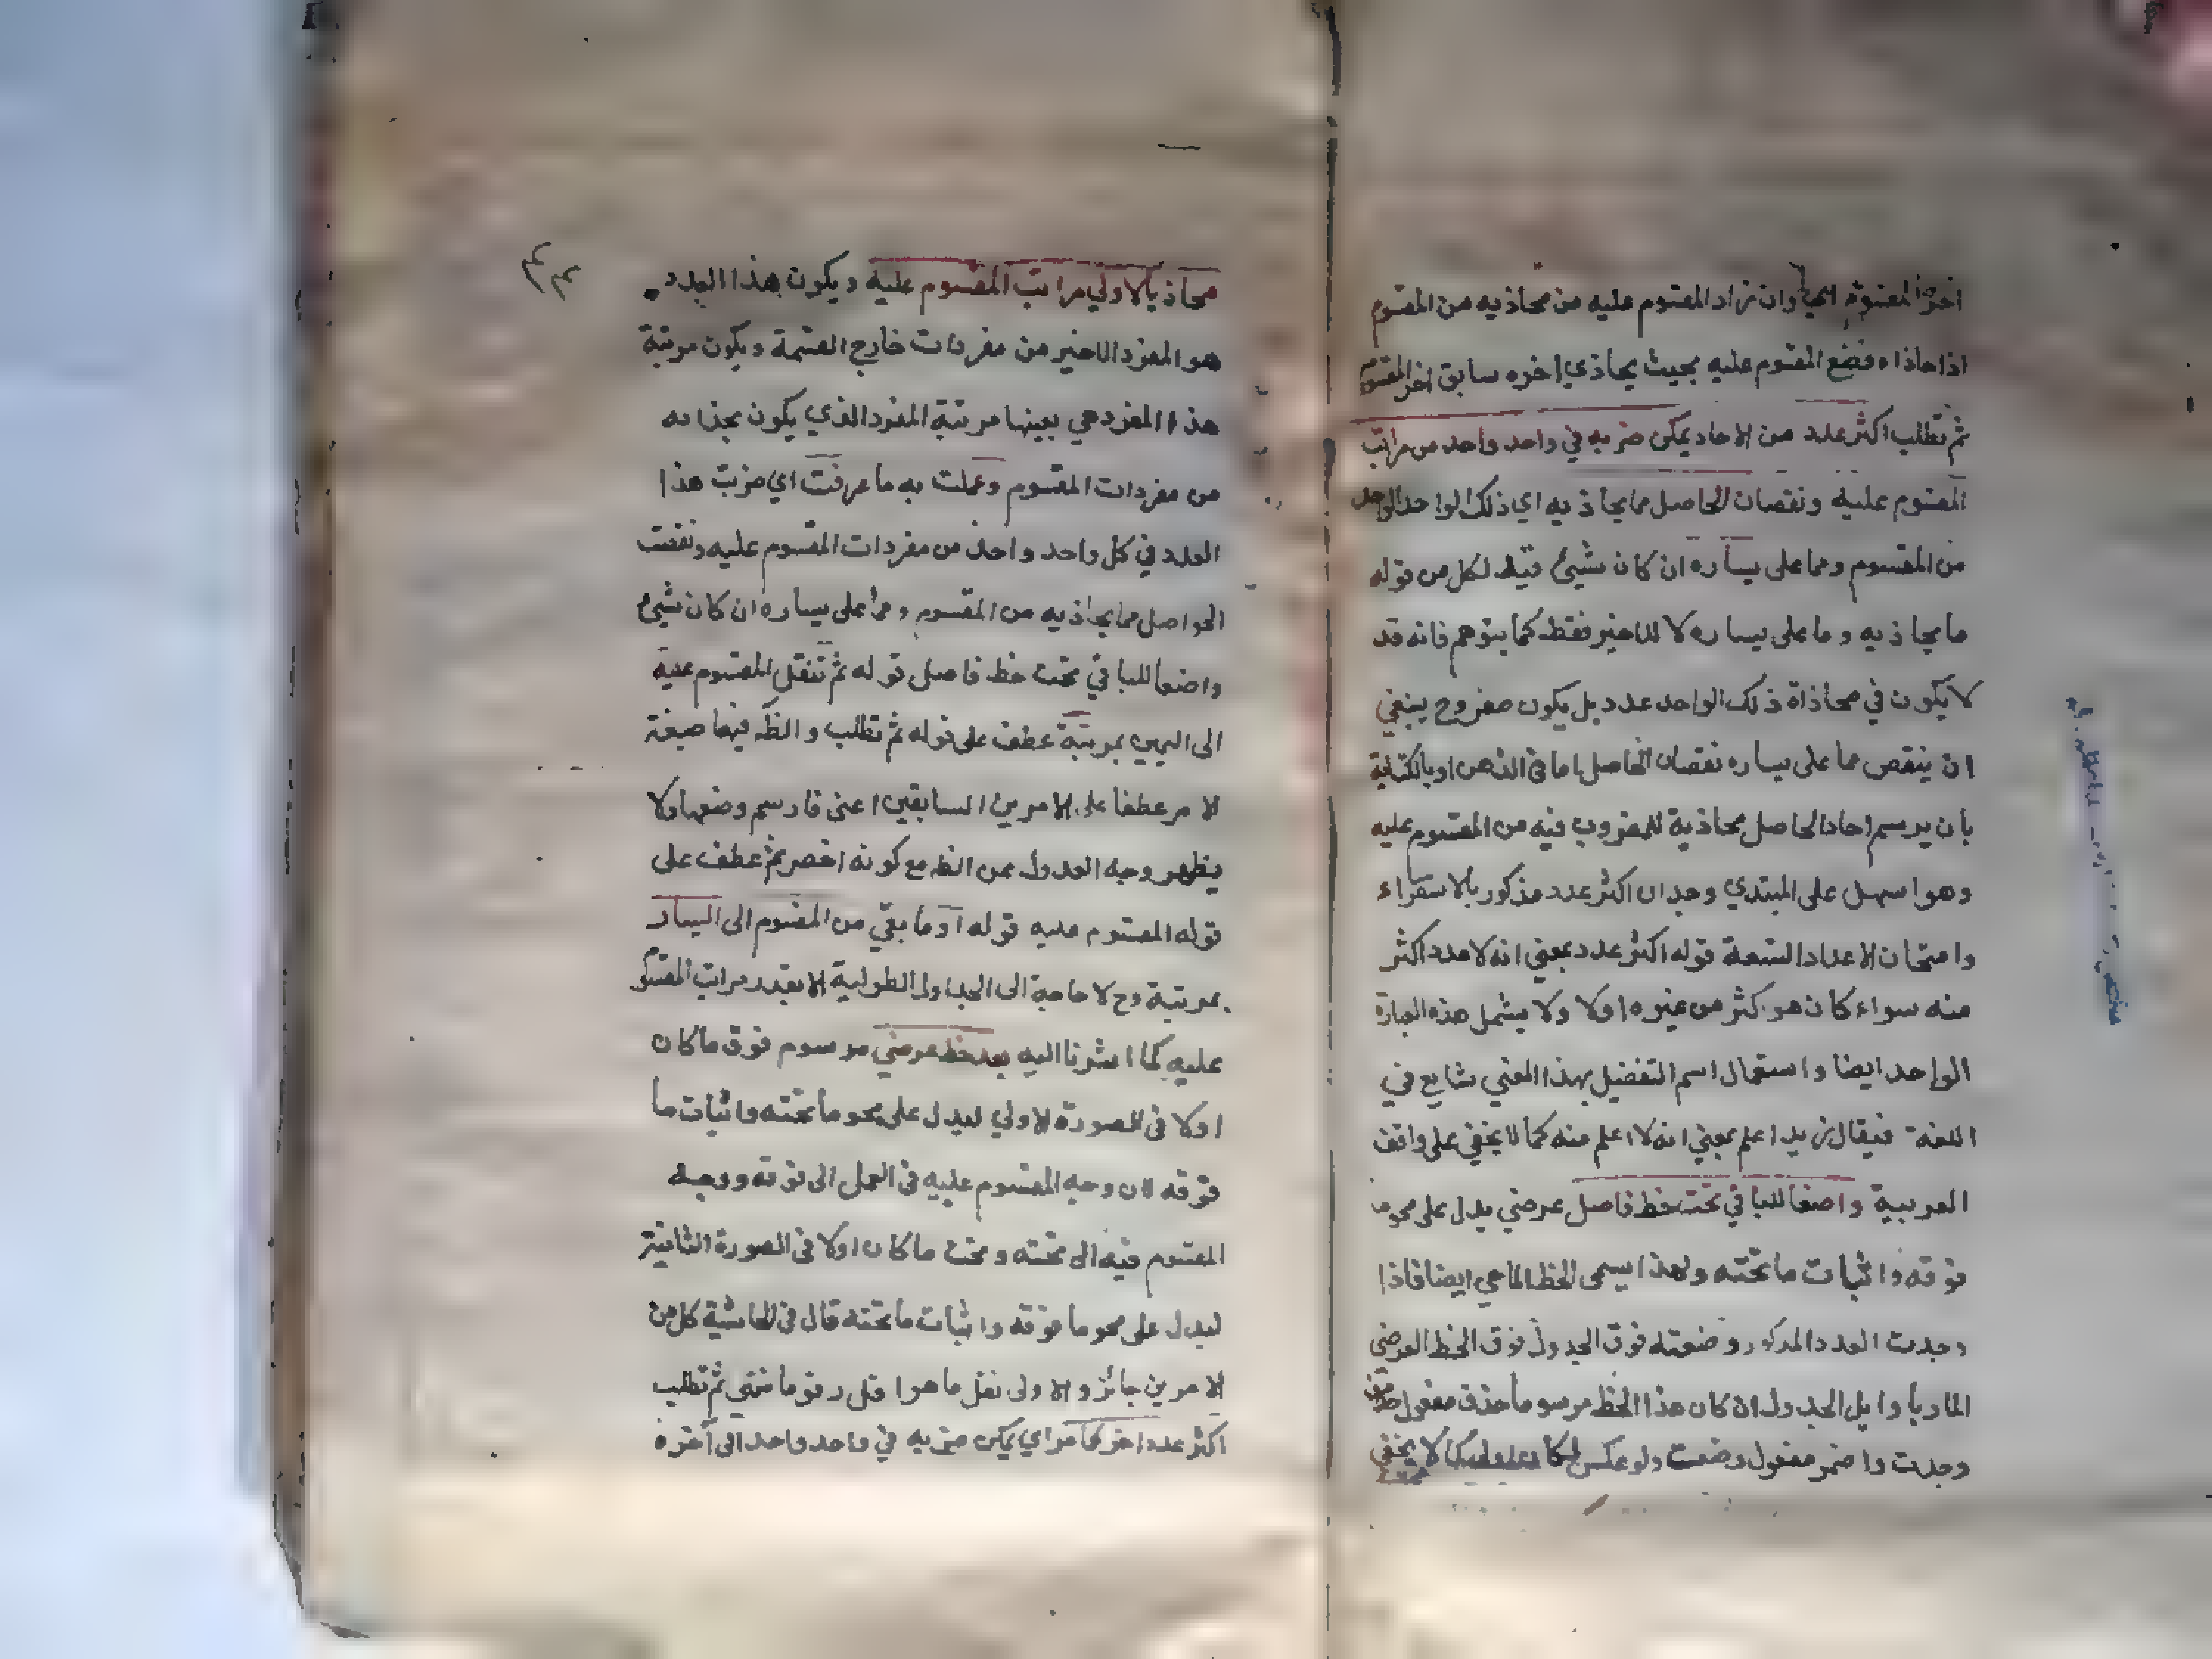 اخر المقسوم اي وان زاد المقسوم عليه من محاذيه من المقسوم
اذا حاذاه فضع المقسوم عليه بحيث يحاذي اخره سابق اخر المقسوم
ثم تطلب اكثر عدد من الاحاد يمكن ضربه في واحد واحد من مراتب
المقسوم عليه ونقصان الحاصل مما يحاذيه اي ذلك الواحد الواحد
من المقسوم ومما على يساره ان كان شيئ قيد لكل من قوله
ما يحاذيه وما على يساره لا للاخير فقط كما يتوهم فانه قد
لا يكون في محاذاة ذلك الواحد عدد بل يكون صفر وح ينبغي
ان ينقص مما على يساره نقصان الحاصل اما في الذهن او بالكتابة
بان يرسم احاد الحاصل محاذية للمضروب فيه من المقسوم عليه
وهو اسهل على المبتدي وجدان اكثر عدد مذكور بالاستقراء
وامتحان الاعداد التسعة قوله اكثر عدد بمعني انه لا عدد اكثر
منه سواء كان هو كثر من غيره اولا ولا يشمل هذه العبارة
الواحد ايضا واستعمال اسم التفضيل بهذا المعني شايع في
اللغة فيقال زيد اعلم بمعني انه لا اعلم منه كما لا يخفي على واقف
العربية واضعا للباقي تحت خط فاصل عرضي يدل على محو ما
فوقه واثبات ما تحته ولهذا يسمى الخط الماحي ايضا فاذا
وجدت العدد المذكور وضعته فوق الجدول فوق الخط العرضي
المار باوايل الجدول ان كان هذا الخط مرسوما حذف مفعول
وجدت واضمر مفعول وضعت ولو عكس لكان كما لا يخفي
محاذيا لاولي مراتب المقسوم عليه ويكون هذا العدد
هو المفرد الاخير من مفردات خارج القسمة ويكون مرتبة
هذا المفرد هي بعينها مرتبة المفرد الذي يكون بحذايه
من مفردات المقسوم وعملت به ما عرفت اي ضربت هذا
العدد في كل واحد واحد من مفردات المقسوم عليه ونقصت
الحواصل مما يحاذيه من المقسوم ومما على يساره ان كان شيئ
واضعا للباقي تحت خط فاصل قوله ثم تنقل المقسوم عليه
الى اليمين بمرتبة عطف على قوله ثم تطلب والظ فيهما صيغة
الامر عطفا على الامرين السابقين اعنى فارسم وضعها ولا
يظهر وجه العدول عن الظ مع كونه اخصر ثم عطف على
قوله المقسوم عليه قوله او ما بقي من المقسوم الى اليسار
بمرتبة وح لا حاجة الى الجداول الطولية الا بقدر مراتب المقسوم
عليه كما اشرنا اليه بعد خط عرضي مرسوم فوق ما كان
اولا في الصورة الاولي ليدل على محو ما تحته واثبات ما
فوقه لان وجه المقسوم عليه في العمل الى فوقه ووجه
المقسوم فيه الى تحته وتحت ما كان اولا في الصورة الثانية
ليدل على محو ما فوقه واثبات ما تحته قال في الحاشية كل من
الامرين جائز والاولى نقل ما هو اقل رقوما ثم تطلب
اكثر عدد اخر كما مر اي يمكن ضربه في واحد واحد الى اخره